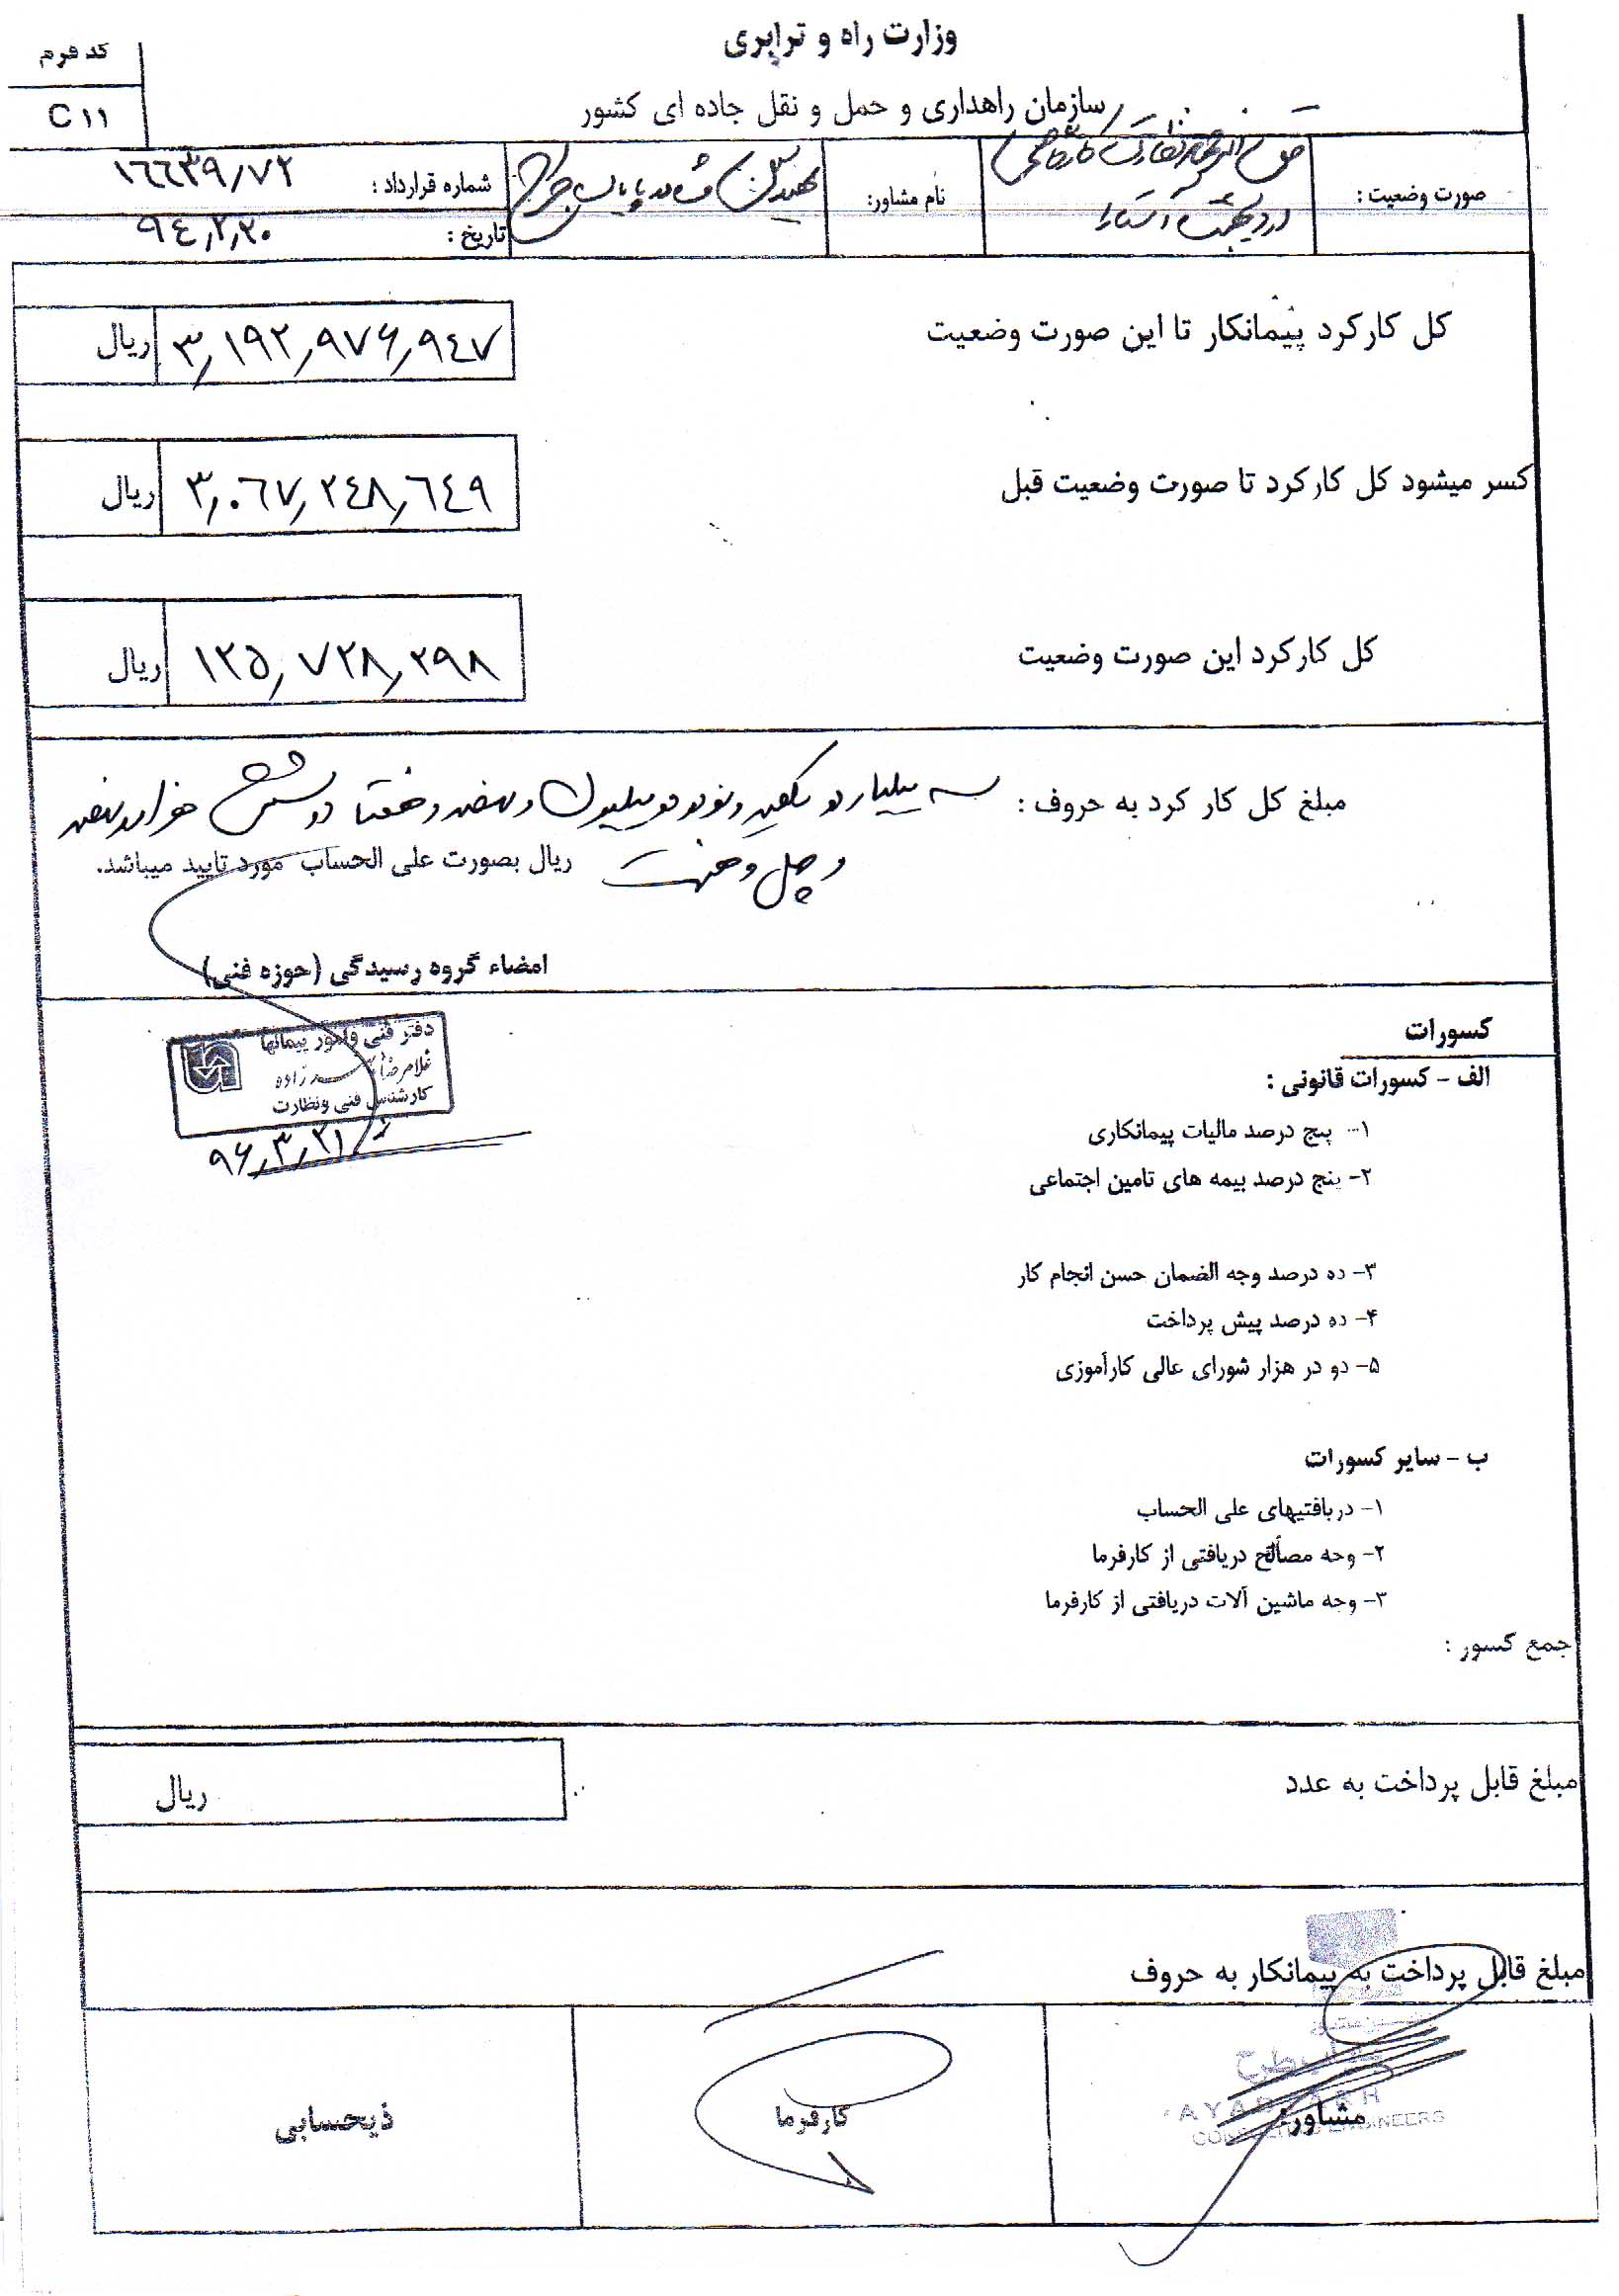 وزارت راه و ترابری
سازمان راهداری و حمل و نقل جاده ای کشور
کد فرم
C ۱۱
صورت وضعیت :
نام مشاور:
مهندسین مشاور پایاب طرح
شماره قرارداد :
۱۶۶۳۹٫۷۲
تاریخ :
۹٤٫۲٫۳۰
کل کارکرد پیمانکار تا این صورت وضعیت
۳٫۱۹۲٫۹۷۶٫۹٤۷ ریال
کسر میشود کل کارکرد تا صورت وضعیت قبل
۳٫۰۶۷٫۲٤۸٫۶٤۹ ریال
کل کارکرد این صورت وضعیت
۱۲۵٫۷۲۸٫۲۹۸ ریال
مبلغ کل کار کرد به حروف : سه میلیارد و یکصد و نود و دو میلیون و نهصد و هفتاد و شش هزار و نهصد
و چهل و هفت ریال بصورت علی الحساب مورد تایید میباشد.
امضاء گروه رسیدگی (حوزه فنی)
دفتر فنی و امور پیمانها
غلامرضا زاده
کارشناس فنی و نظارت
۹۶٫۳٫۲۱
کسورات
الف - کسورات قانونی :
۱- پنج درصد مالیات پیمانکاری
۲- پنج درصد بیمه های تامین اجتماعی
۳- ده درصد وجه الضمان حسن انجام کار
۴- ده درصد پیش پرداخت
۵- دو در هزار شورای عالی کارآموزی
ب - سایر کسورات
۱- دریافتیهای علی الحساب
۲- وجه مصالح دریافتی از کارفرما
۳- وجه ماشین آلات دریافتی از کارفرما
جمع کسور :
مبلغ قابل پرداخت به عدد
ریال
مبلغ قابل پرداخت به پیمانکار به حروف
مشاور:
کارفرما
ذیحسابی